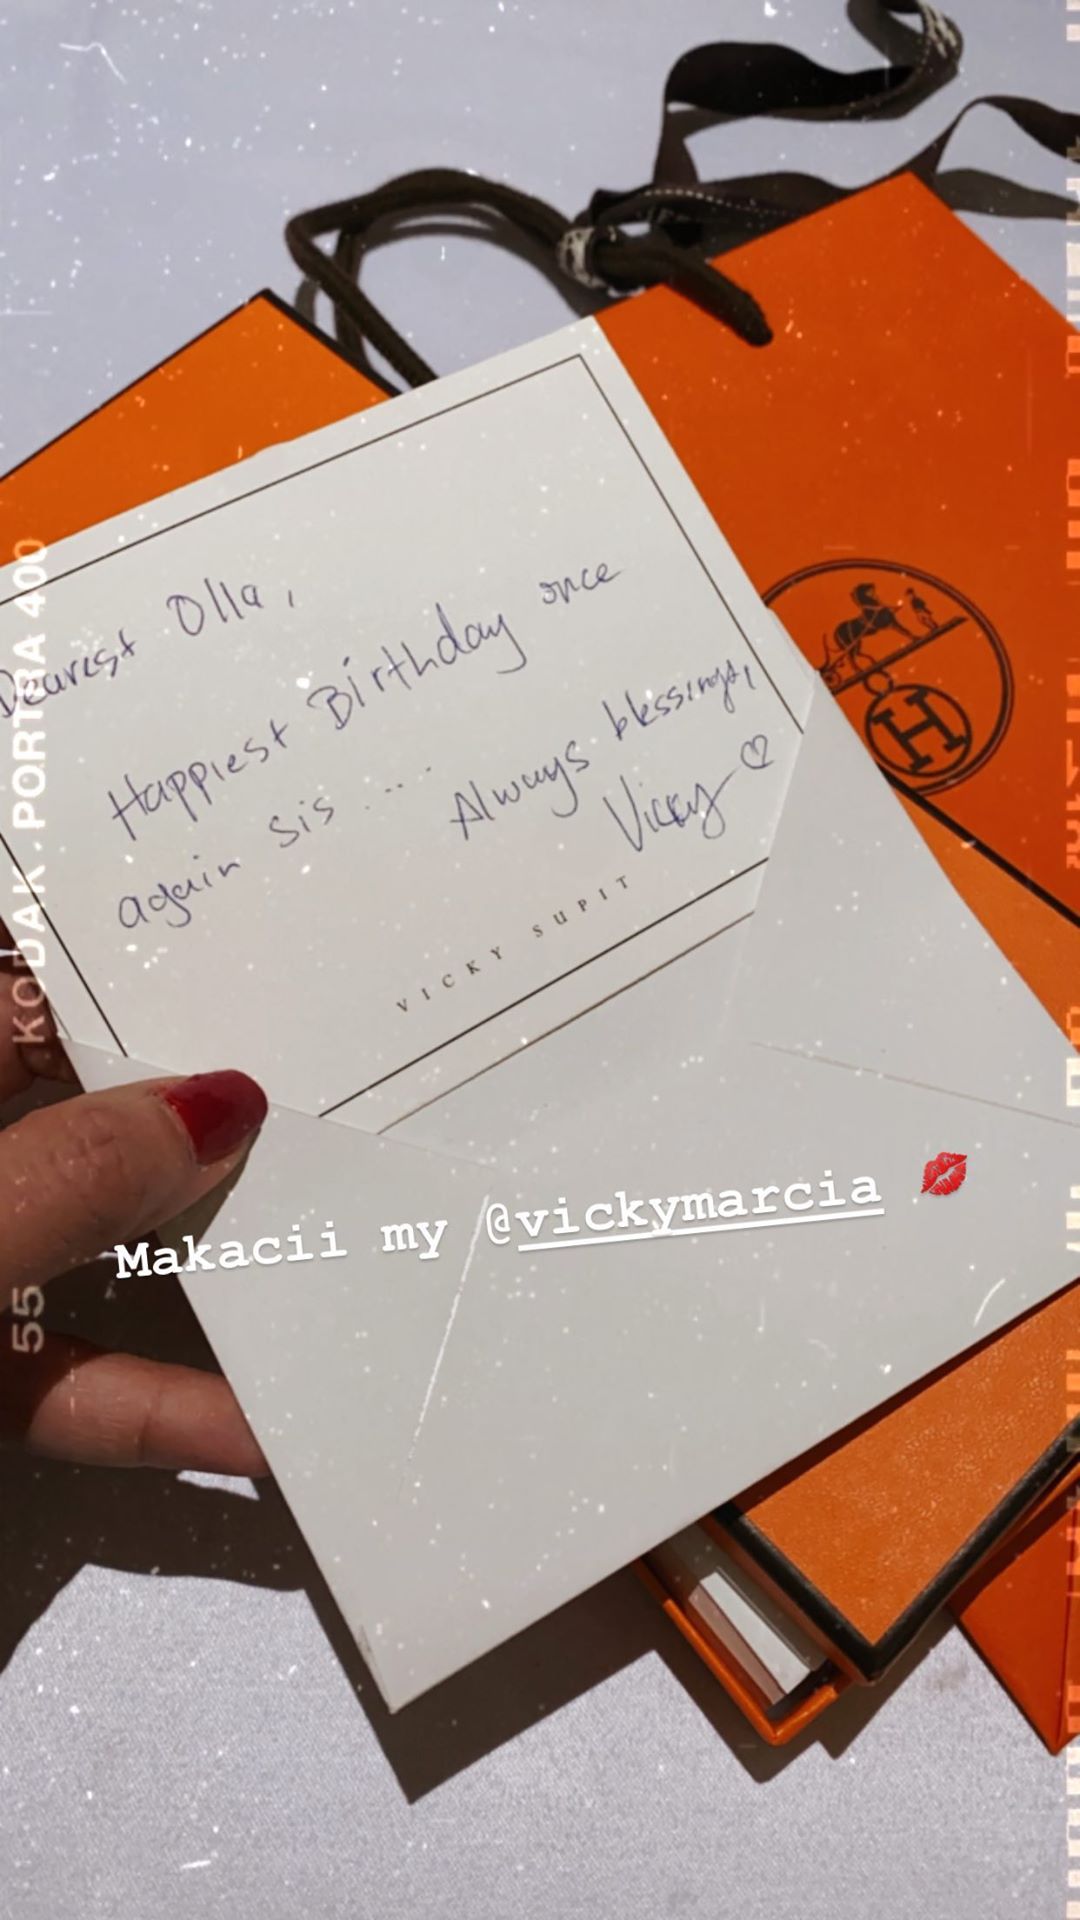 Dearest Olla,
Happiest Birthday once
again sis ....
Always blessings,
Vicky ♡
VICKY SUPIT
Makacii my @vickymarcia 💋
KODAK PORTRA 400
55
H